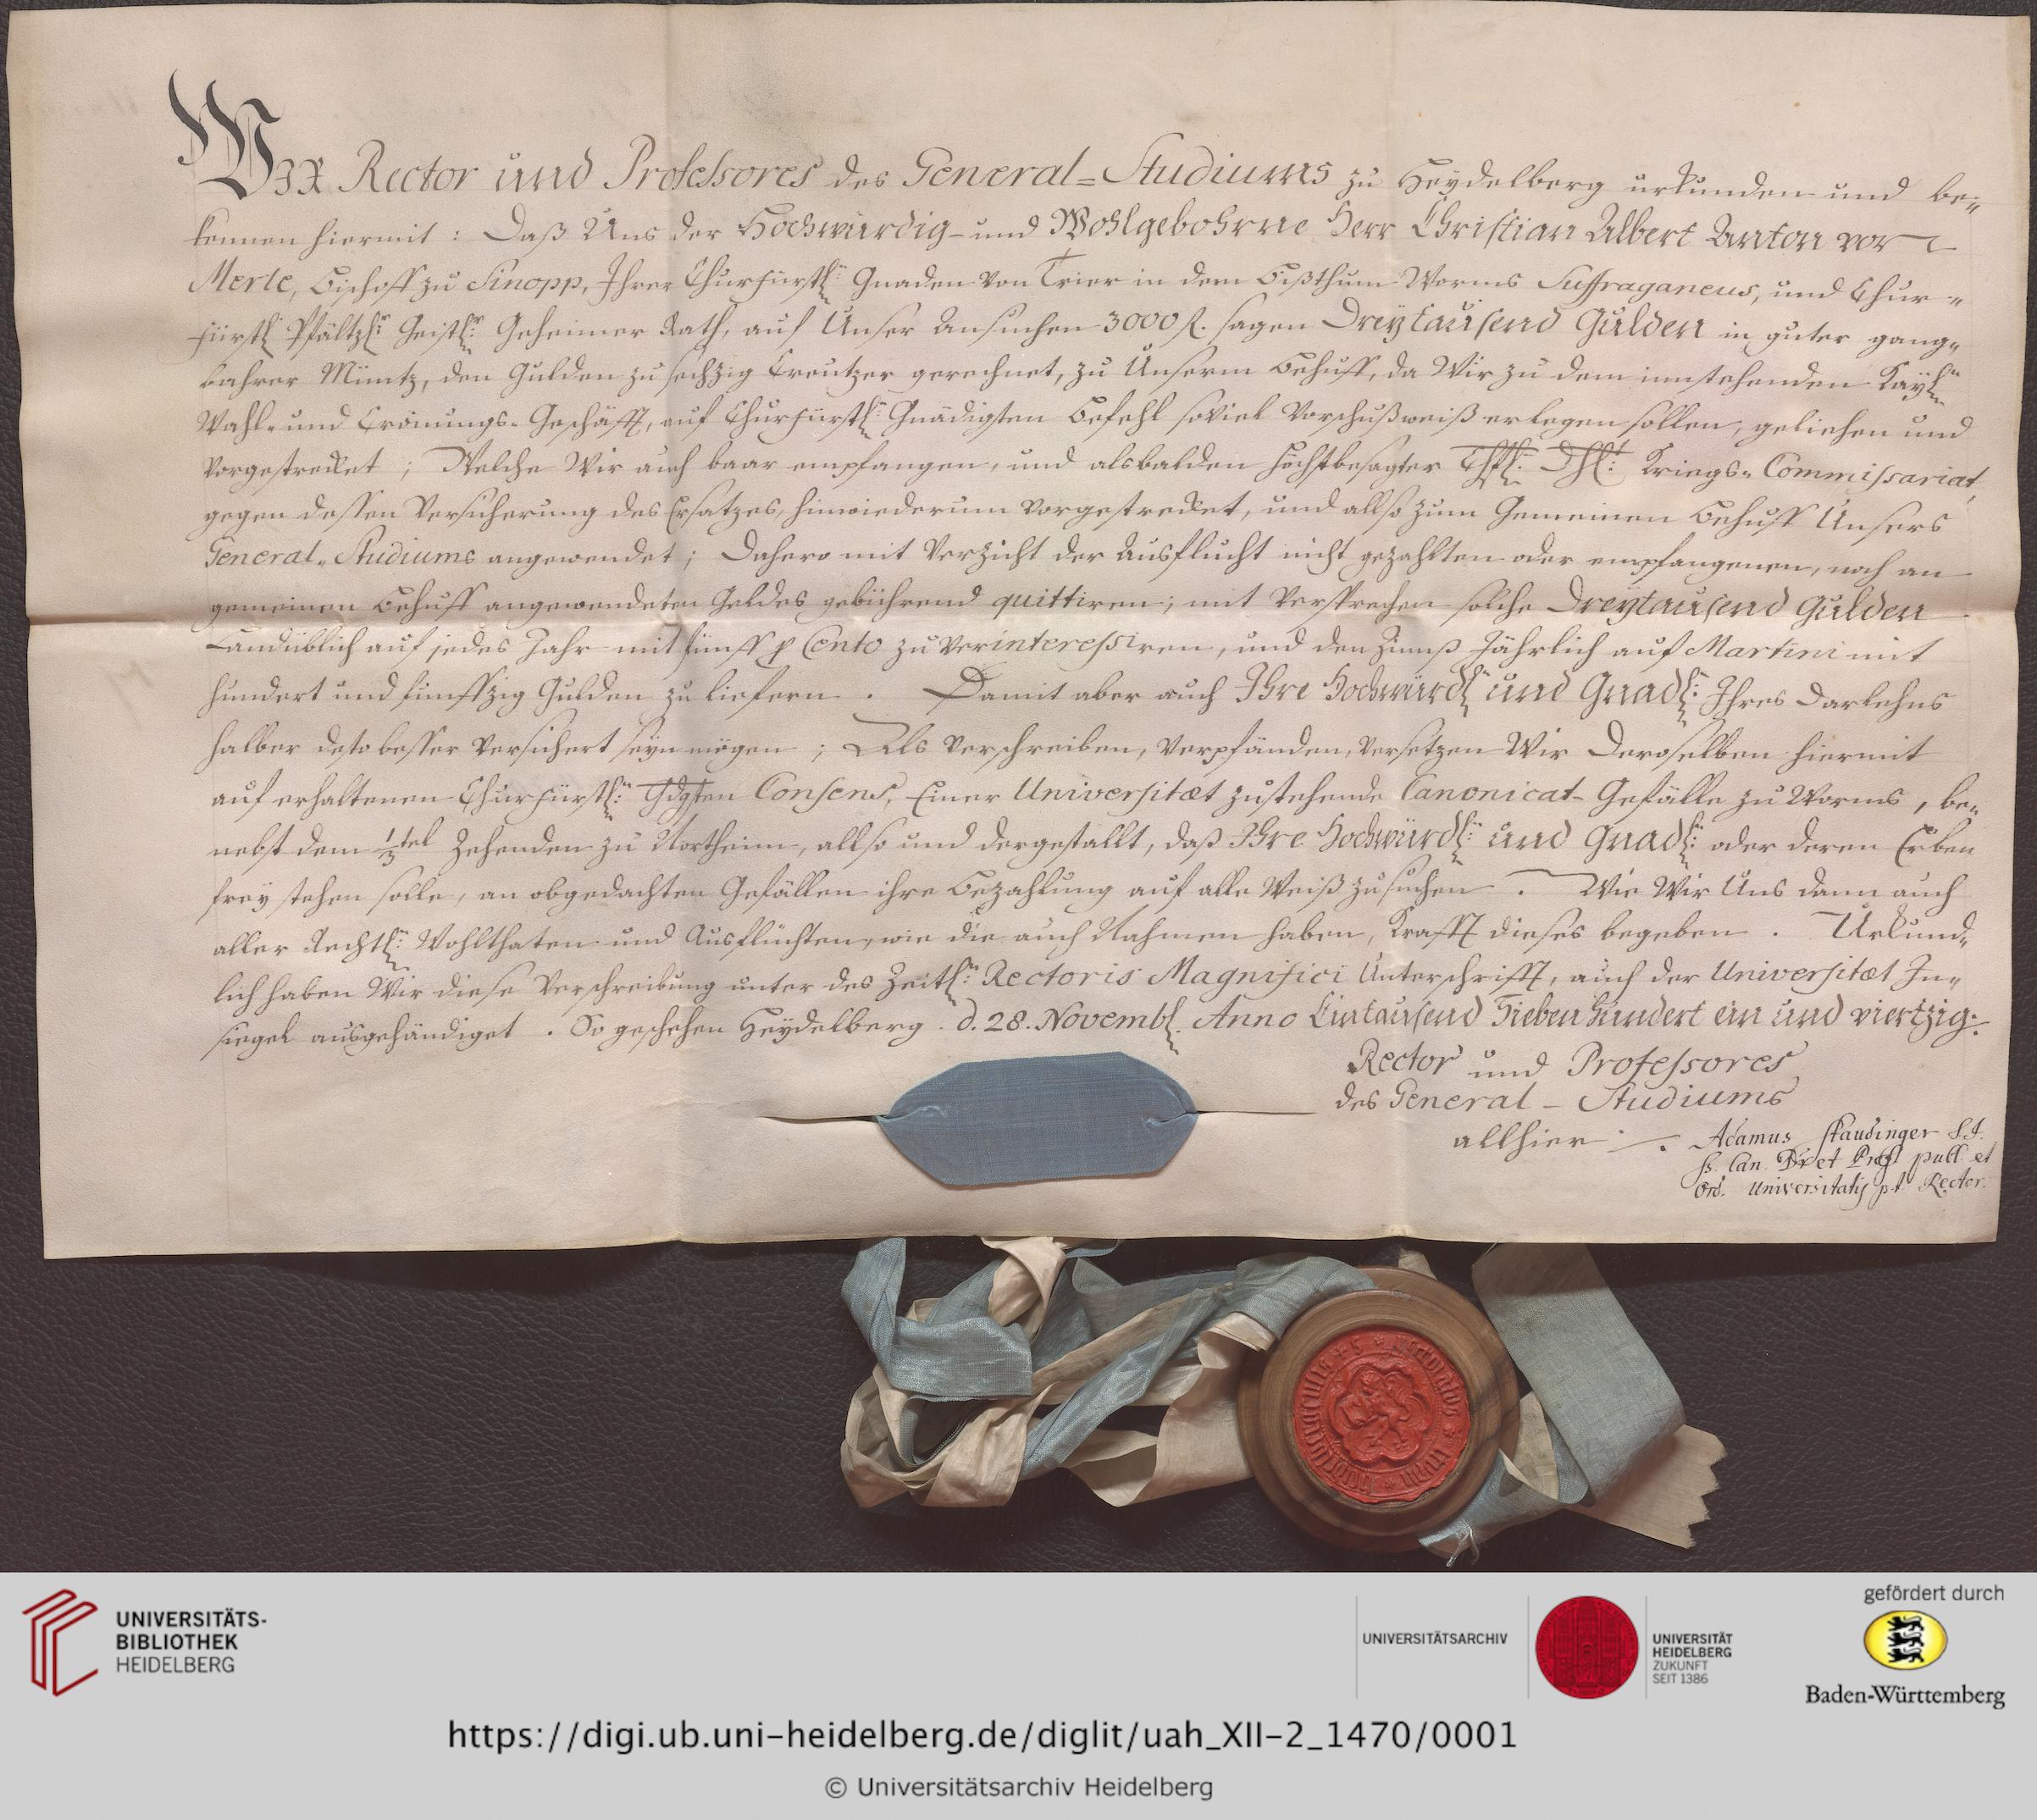 Wir Rector und Professores des General=Studiums zu Heydelberg urkunden und be=
kennen hiermit: Daß Uns der Hochwürdig- und Wohlgebohrne Herr Christian Albert Anton von
Merle, Bischoff zu Sinopp, Ihrer Churfürstl: Gnaden von Trier in dem Bißthum Worms Suffraganeus, und Chur=
fürstl Pfältzl: Geistl: Geheimer Rath, auf Unser Ansuchen 3000 fl. sagen Dreytausend Gulden in guter gang=
bahrer Müntz, den Gulden zu sechzig Creutzer gerechnet, zu Unserm Behuff, da Wir zu dem innstehenden Kayl:
Wahl= und Crönungs=Geschäfft, auf Churfürstl: Gnädigsten Befehl soviel Vorschußweiß erlegen sollen, geliehen und
vorgestrecket; Welche Wir auch baar empfangen, und alsbalden höchstbesagter Chfl: Dhl: Kriegs=Commissariat,
gegen dessen Versicherung des Ersatzes, hinwiederum vorgestrecket, und allso zum Gemeinen Behuff Unsers
General=Studiums angewendet; Dahero mit Verzicht der Ausflucht nicht gezahlten oder empfangenen, noch an
gemeinen Behuff angewendeten Geldes gebührend quittiren; mit Versprechen solche Dreytausend Gulden
Landüblich auf jedes Jahr mit fünff p Cento zu verinteressiren, und den Zinnß Jährlich auf Martini mit
hundert und fünffzig Gulden zu liefern. Damit aber auch Ihre Hochwürdl: und Gnadl: Ihres Darlehns
halber desto besser versichert seyn mögen; Als verschreiben, verpfänden, versetzen Wir Deroselben hiermit
auf erhaltenen Churfürstl: Gdgsten Consens, Einer Universitæt zustehende Canonicat-Gefälle zu Worms, be=
nebst dem 1/3tel Zehenden zu Northeim, allso und dergestallt, daß Ihre Hochwürdl: und Gnadl: oder deren Erben
frey stehen solle, an obgedachten Gefällen ihre Bezahlung auf alle Weiß zu suchen. Wie Wir Uns dann auch
aller Rechtl: Wohlthaten und Ausflüchten, wie die auch Nahmen haben, Krafft dieses begeben. Urkund=
lich haben Wir diese Verschreibung unter des Zeitl: Rectoris Magnifici Unterschrifft, auch der Universitæt In=
siegel ausgehändiget. So geschehen Heydelberg. d. 28. Novembl. Anno Eintausend Siebenhundert ein und viertzig.
Rector und Professores
des General-Studiums
allhier.
Adamus Staudinger S.J.
ss. Can. Dr et Prof publ et
Ord. Universitatis p.t. Rector.
UNIVERSITÄTS-
BIBLIOTHEK
HEIDELBERG
UNIVERSITÄTSARCHIV
UNIVERSITÄT
HEIDELBERG
ZUKUNFT
SEIT 1386
gefördert durch
Baden-Württemberg
https://digi.ub.uni-heidelberg.de/diglit/uah_XII-2_1470/0001
© Universitätsarchiv Heidelberg